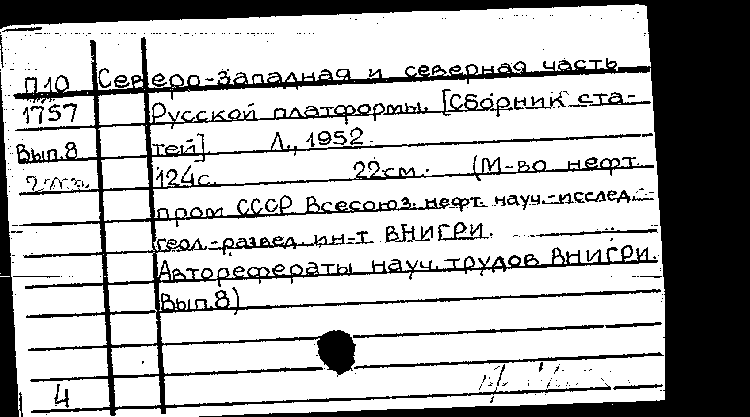 П10 Северо-западная и северная часть
1757 Русской платформы. [Сборник ста-
Вып.8 тей]. Л., 1952.
124с. 22см. (М-во нефт.
пром СССР Всесоюз. нефт. науч.-исслед.
геол.-развед. ин-т ВНИГРИ.
Авторефераты науч. трудов ВНИГРИ.
Вып.8)
4